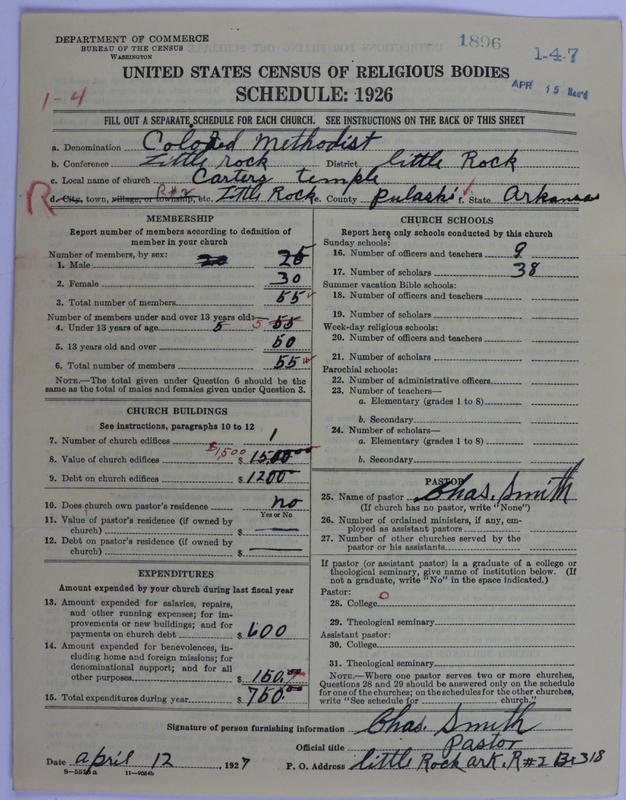 DEPARTMENT OF COMMERCE
BUREAU OF THE CENSUS
WASHINGTON
1896
1-4-7
UNITED STATES CENSUS OF RELIGIOUS BODIES
APR 15 Rec'd
1-4
SCHEDULE: 1926
FILL OUT A SEPARATE SCHEDULE FOR EACH CHURCH. SEE INSTRUCTIONS ON THE BACK OF THIS SHEET
a. Denomination Colored Methodist
b. Conference Little rock District little Rock
c. Local name of church Carters temple
R d. City, town, village, or township, etc. R#2 Little Rock e. County pulaski f. State Arkansas
MEMBERSHIP
Report number of members according to definition of
member in your church
Number of members, by sex:
1. Male 20 25
2. Female 30
3. Total number of members 55
Number of members under and over 13 years old—
4. Under 13 years of age 5 5 55
5. 13 years old and over 50
6. Total number of members 55
NOTE.—The total given under Question 6 should be the
same as the total of males and females given under Question 3.
CHURCH BUILDINGS
See instructions, paragraphs 10 to 12
7. Number of church edifices 1
$1,500
8. Value of church edifices $ 1500.00
9. Debt on church edifices $ 1200
10. Does church own pastor's residence no
Yes or No
11. Value of pastor's residence (if owned by
church) $ —
12. Debt on pastor's residence (if owned by
church) $ —
EXPENDITURES
Amount expended by your church during last fiscal year
13. Amount expended for salaries, repairs,
and other running expenses; for im-
provements or new buildings; and for
payments on church debt $ 600
14. Amount expended for benevolences, in-
cluding home and foreign missions; for
denominational support; and for all
other purposes $ 150.00
15. Total expenditures during year $ 750.00
CHURCH SCHOOLS
Report here only schools conducted by this church
Sunday schools:
16. Number of officers and teachers 9
17. Number of scholars 38
Summer vacation Bible schools:
18. Number of officers and teachers
19. Number of scholars
Week-day religious schools:
20. Number of officers and teachers
21. Number of scholars
Parochial schools:
22. Number of administrative officers
23. Number of teachers—
a. Elementary (grades 1 to 8)
b. Secondary
24. Number of scholars—
a. Elementary (grades 1 to 8)
b. Secondary
PASTOR
25. Name of pastor Chas. Smith
(If church has no pastor, write "None")
26. Number of ordained ministers, if any, em-
ployed as assistant pastors
27. Number of other churches served by the
pastor or his assistants
If pastor (or assistant pastor) is a graduate of a college or
theological seminary, give name of institution below. (If
not a graduate, write "No" in the space indicated.)
Pastor:
28. College 0
29. Theological seminary
Assistant pastor:
30. College
31. Theological seminary
NOTE.—Where one pastor serves two or more churches,
Questions 28 and 29 should be answered only on the schedule
for one of the churches; on the schedules for the other churches,
write "See schedule for church."
Signature of person furnishing information Chas. Smith
Official title Pastor
Date april 12, 1927 P. O. Address little Rock ark. R#2 Bx 318
8-551a 11-9084b